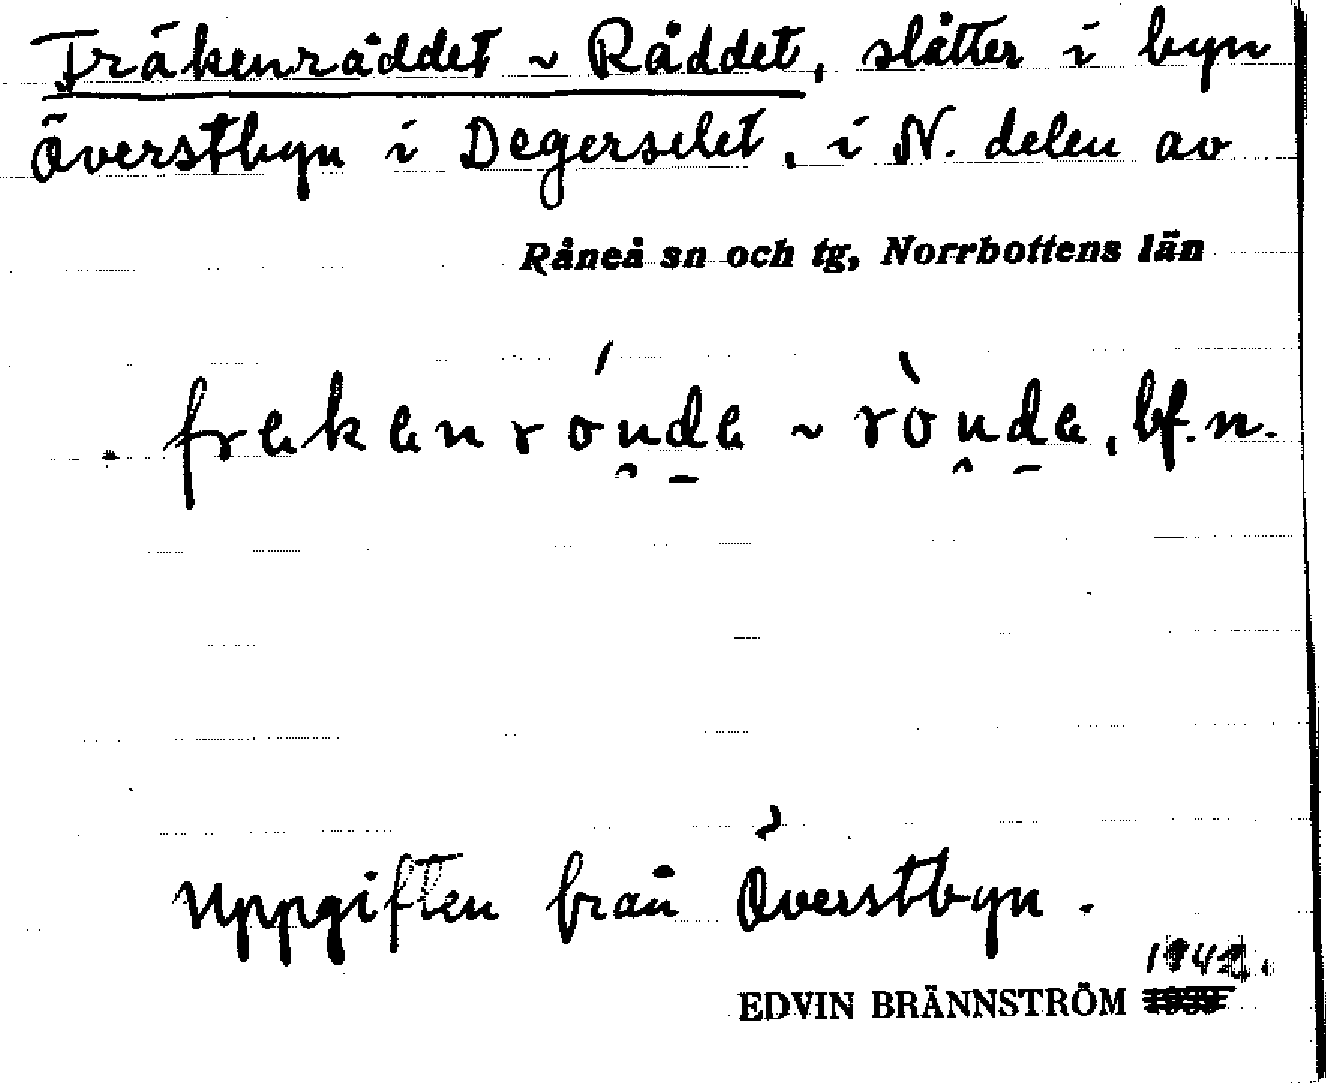 Fräkenråddet ~ Råddet, slåtter i byn
Överstbyn i Degerselet, i N. delen av
Råneå sn och tg, Norrbottens län
frekenrónde ~ rònde, bf. n.
Uppgiften från Överstbyn.
EDVIN BRÄNNSTRÖM